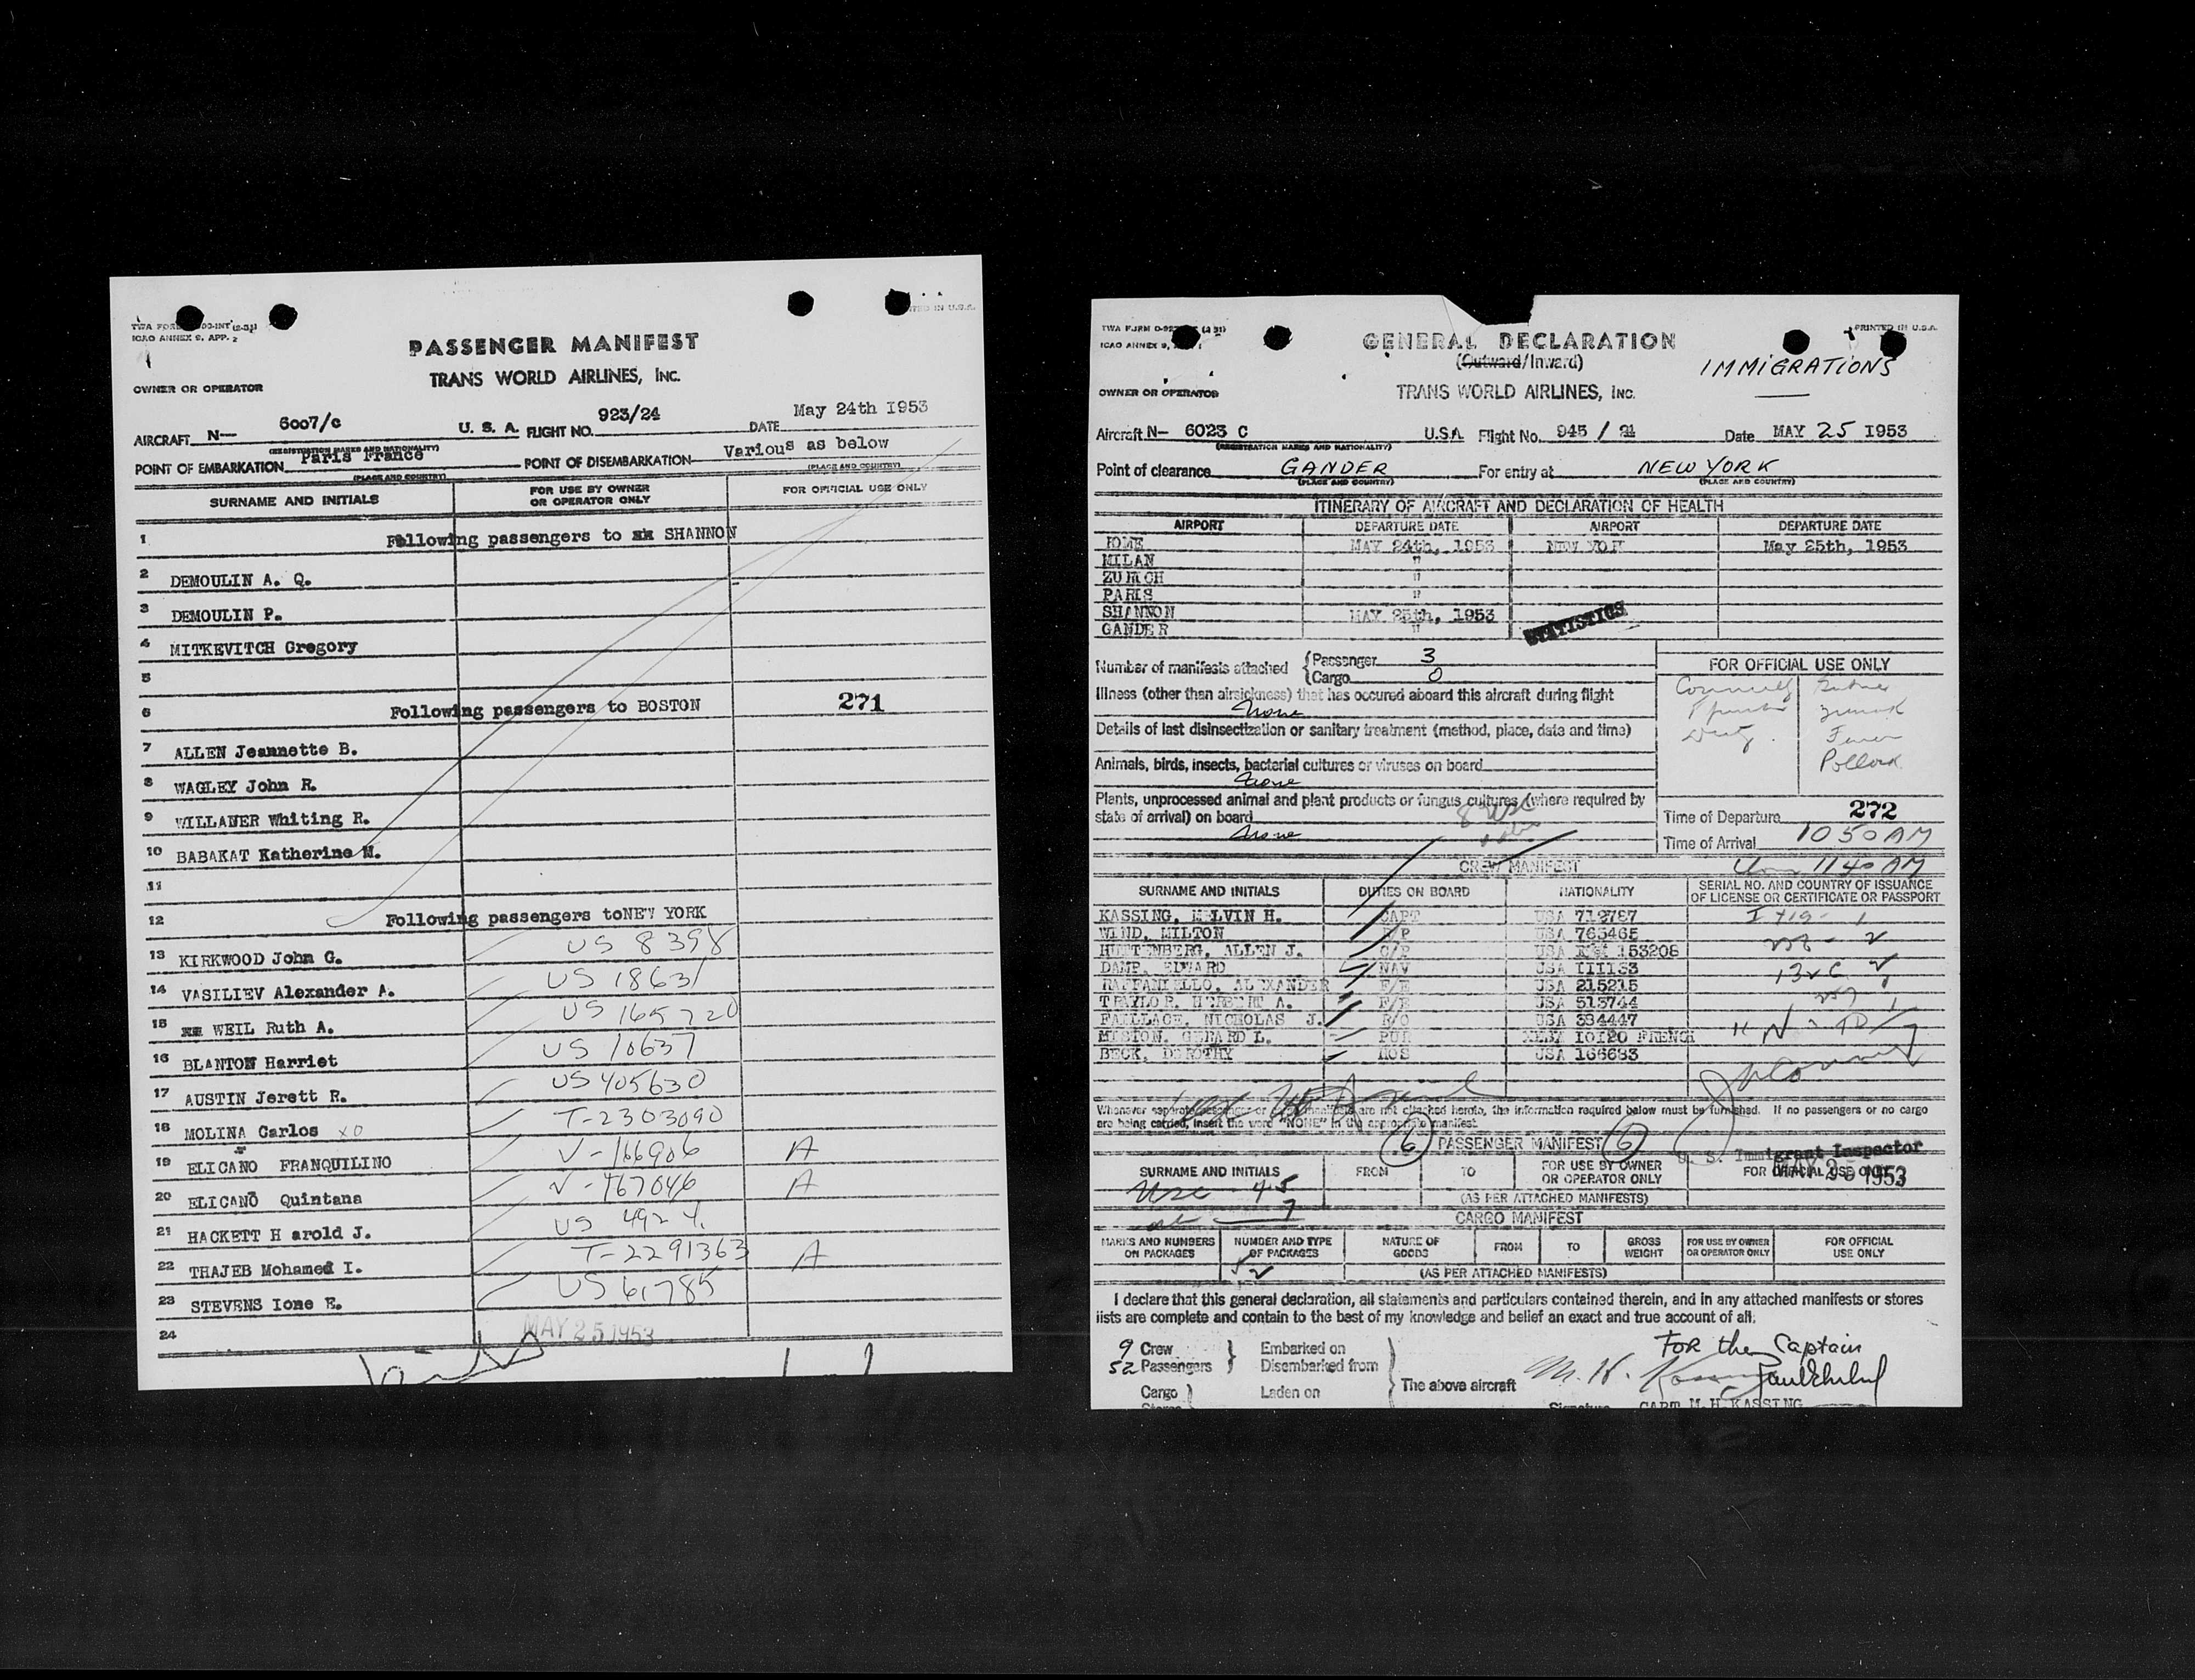 TWA FOR
ICAO ANNEX 9, APP. 2
PRINTED IN U.S.A.
PASSENGER MANIFEST
TRANS WORLD AIRLINES, INC.
OWNER OR OPERATOR
AIRCRAFT N— 6007/c U. S. A. FLIGHT NO. 923/24 DATE May 24th 1953
(REGISTRATION MARKS AND NATIONALITY)
POINT OF EMBARKATION Paris France POINT OF DISEMBARKATION Various as below
(PLACE AND COUNTRY) (PLACE AND COUNTRY)
SURNAME AND INITIALS FOR USE BY OWNER OR OPERATOR ONLY FOR OFFICIAL USE ONLY
1 Following passengers to SHANNON
2 DEMOULIN A. Q.
3 DEMOULIN P.
4 MITKEVITCH Gregory
5
6 Following passengers to BOSTON 271
7 ALLEN Jeannette B.
8 WAGLEY John R.
9 WILLANER Whiting R.
10 BABAKAT Katherine N.
11
12 Following passengers toNEW YORK
13 KIRKWOOD John G. US 8398
14 VASILIEV Alexander A. US 18631
15 WEIL Ruth A. US 165720
16 BLANTON Harriet US 10637
17 AUSTIN Jerett R. US 405630
18 MOLINA Carlos XO T-2303090
19 ELICANO FRANQUILINO V-166906 A
20 ELICANO Quintana V-467046 A
21 HACKETT H arold J. US 4924
22 THAJEB Mohamed I. T-2291363 A
23 STEVENS Ione E. US 61785
24
MAY 25 1953
TWA FORM
ICAO ANNEX 9,
PRINTED IN U.S.A.
GENERAL DECLARATION
(Outward/Inward)
IMMIGRATIONS
OWNER OR OPERATOR
TRANS WORLD AIRLINES, INC.
Aircraft N— 6023 C U.S.A Flight No. 945 / 21 Date MAY 25 1953
(REGISTRATION MARKS AND NATIONALITY)
Point of clearance GANDER For entry at NEW YORK
(PLACE AND COUNTRY) (PLACE AND COUNTRY)
ITINERARY OF AIRCRAFT AND DECLARATION OF HEALTH
AIRPORT DEPARTURE DATE AIRPORT DEPARTURE DATE
ROME MAY 24th, 1953 NEW YOK May 25th, 1953
MILAN "
ZURICH "
PARIS "
SHANNON MAY 25th, 1953
GANDER "
STATISTICS
Number of manifests attached Passenger 3
Cargo 0
FOR OFFICIAL USE ONLY
Illness (other than airsickness) that has occured aboard this aircraft during flight
None
Details of last disinsectization or sanitary treatment (method, place, date and time)
Pollock
Animals, birds, insects, bacterial cultures or viruses on board
None
Plants, unprocessed animal and plant products or fungus cultures (where required by
state of arrival) on board
None
8 USC
272
Time of Departure
Time of Arrival 10 50 AM
11 40 AM
CREW MANIFEST
SURNAME AND INITIALS DUTIES ON BOARD NATIONALITY SERIAL NO. AND COUNTRY OF ISSUANCE OF LICENSE OR CERTIFICATE OR PASSPORT
KASSING, MELVIN H. CAPT USA 712787
WIND, MILTON USA 763465
HUTTENBERG, ALLEN J. USA 153208
DAMP, EDWARD NAV USA 111133
RAFFANIELLO, ALEXANDER F/E USA 215215
TRAYLOR, HERBERT A. F/E USA 513744
FAILLACE, NICHOLAS J. R/O USA 384447
MISTON, GERARD L. PUR 10120 FRENCH
BECK, DOROTHY HOS USA 166683
Whenever separate passenger or cargo manifests are not attached hereto, the information required below must be furnished. If no passengers or no cargo
are being carried, insert the word "NONE" in the appropriate manifest.
6 PASSENGER MANIFEST 6
U. S. Immigrant Inspector
SURNAME AND INITIALS FROM TO FOR USE BY OWNER OR OPERATOR ONLY FOR OFFICIAL USE ONLY
MAY 25 1953
USC 45
7
(AS PER ATTACHED MANIFESTS)
CARGO MANIFEST
MARKS AND NUMBERS ON PACKAGES NUMBER AND TYPE OF PACKAGES NATURE OF GOODS FROM TO GROSS WEIGHT FOR USE BY OWNER OR OPERATOR ONLY FOR OFFICIAL USE ONLY
52
(AS PER ATTACHED MANIFESTS)
I declare that this general declaration, all statements and particulars contained therein, and in any attached manifests or stores
lists are complete and contain to the best of my knowledge and belief an exact and true account of all:
9 Crew Embarked on
52 Passengers Disembarked from
Cargo Laden on
The above aircraft
For the Captain
M. H. Kassing
Signature CAPT M. H. KASSING